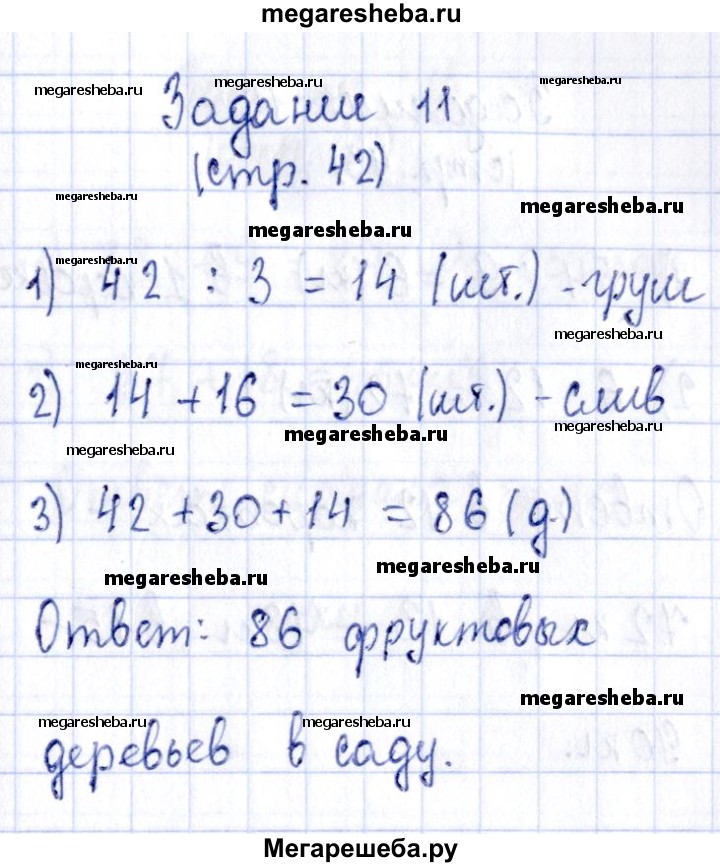 megaresheba.ru
megaresheba.ru megaresheba.ru megaresheba.ru
Задание 11
(стр. 42)
megaresheba.ru megaresheba.ru
megaresheba.ru
megaresheba.ru
1) 42 : 3 = 14 (шт.) - груш
megaresheba.ru
megaresheba.ru
2) 14 + 16 = 30 (шт.) - слив
megaresheba.ru megaresheba.ru
megaresheba.ru
3) 42 + 30 + 14 = 86 (д.)
megaresheba.ru megaresheba.ru
Ответ: 86 фруктовых
megaresheba.ru
megaresheba.ru megaresheba.ru
деревьев в саду.
Мегарешеба.ру